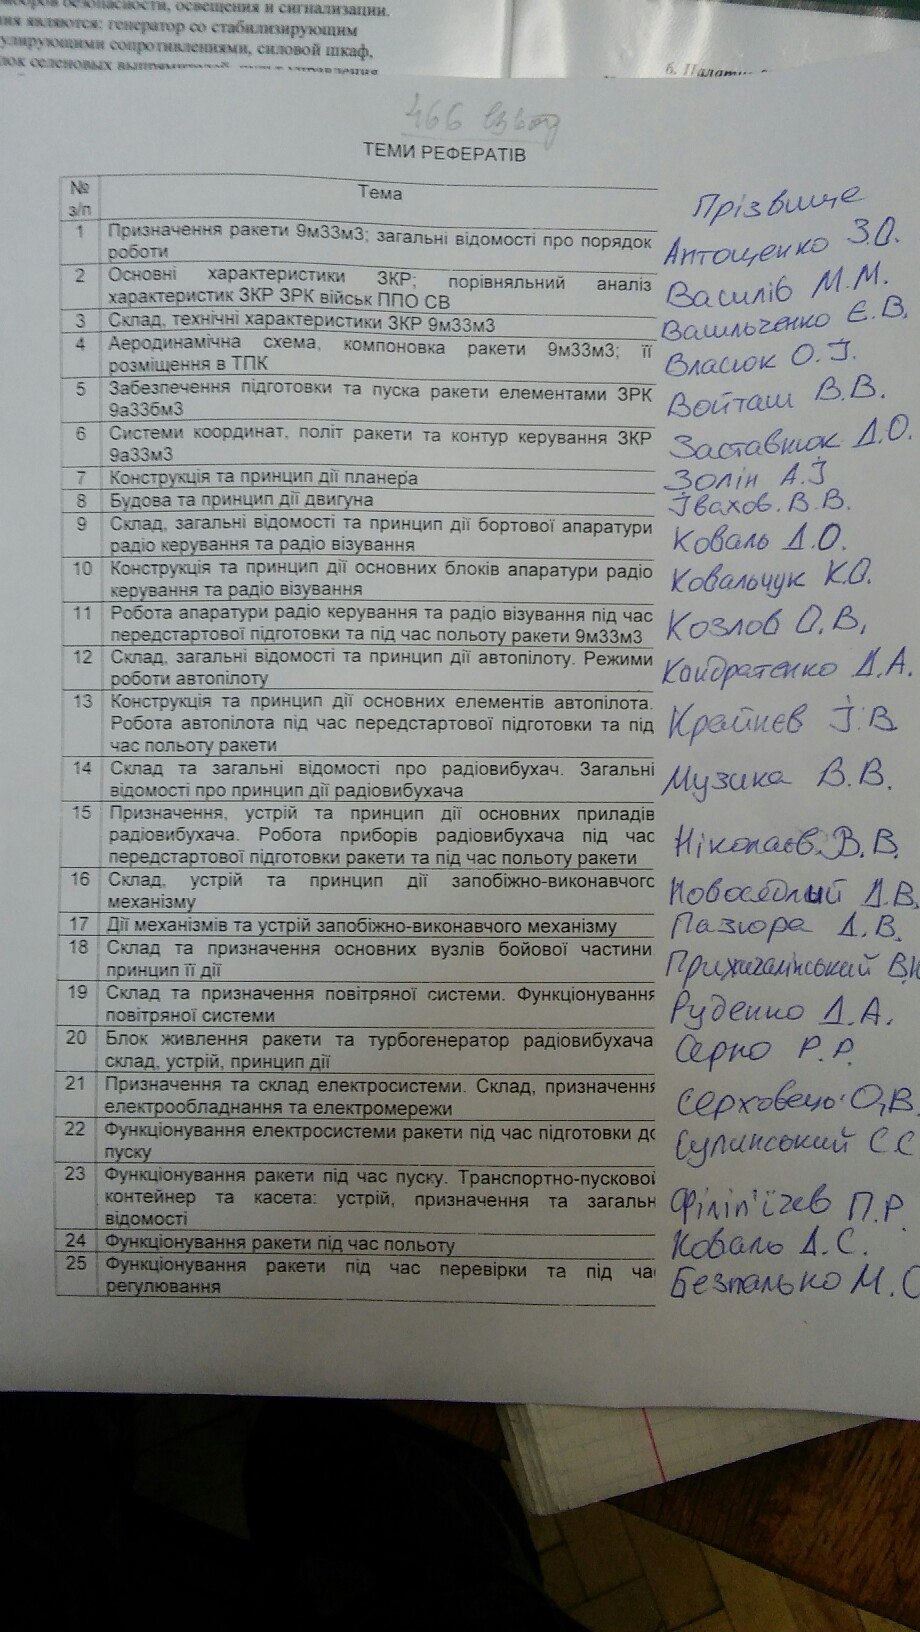 боров безопасности, освещения и сигнализации.
ия являются: генератор со стабилизирующим
улирующими сопротивлениями, силовой шкаф,
лок селеновых выпрямителей,
6.
466 взвод
ТЕМИ РЕФЕРАТІВ
№ з/п Тема Прізвище
1 Призначення ракети 9м33м3; загальні відомості про порядок Антощенко З.О.
роботи
2 Основні характеристики ЗКР; порівняльний аналіз Василів М.М.
характеристик ЗКР ЗРК військ ППО СВ
3 Склад, технічні характеристики ЗКР 9м33м3 Васильченко Є.В.
4 Аеродинамічна схема, компоновка ракети 9м33м3; її Власюк О.І.
розміщення в ТПК
5 Забезпечення підготовки та пуска ракети елементами ЗРК Войташ В.В.
9а33бм3
6 Системи координат, політ ракети та контур керування ЗКР Заставнюк Д.О.
9а33м3
7 Конструкція та принцип дії планера Золін А.І
8 Будова та принцип дії двигуна Івахов. В.В.
9 Склад, загальні відомості та принцип дії бортової апаратури Коваль Д.О.
радіо керування та радіо візування
10 Конструкція та принцип дії основних блоків апаратури радіо Ковальчук К.О.
керування та радіо візування
11 Робота апаратури радіо керування та радіо візування під час Козлов О.В.
передстартової підготовки та під час польоту ракети 9м33м3
12 Склад, загальні відомості та принцип дії автопілоту. Режими Кондратенко Д.А.
роботи автопілоту
13 Конструкція та принцип дії основних елементів автопілота. Крайнєв І.В
Робота автопілота під час передстартової підготовки та під
час польоту ракети
14 Склад та загальні відомості про радіовибухач. Загальні Музика В.В.
відомості про принцип дії радіовибухача
15 Призначення, устрій та принцип дії основних приладів Ніколаєв. В.В.
радіовибухача. Робота приборів радіовибухача під час
передстартової підготовки ракети та під час польоту ракети
16 Склад, устрій та принцип дії запобіжно-виконавчого Новосядлий Д.В.
механізму
17 Дії механізмів та устрій запобіжно-виконавчого механізму Пазюра Д.В.
18 Склад та призначення основних вузлів бойової частини
принцип її дії
19 Склад та призначення повітряної системи. Функціонування Руденко Д.А.
повітряної системи
20 Блок живлення ракети та турбогенератор радіовибухача Серко Р.Р.
склад, устрій, принцип дії
21 Призначення та склад електросистеми. Склад, призначення Серховець О.В
електрообладнання та електромережи
22 Функціонування електросистеми ракети під час підготовки до Сулинський С.С
пуску
23 Функціонування ракети під час пуску. Транспортно-пускової Філіп'їчев П.Р.
контейнер та касета: устрій, призначення та загальн
відомості
24 Функціонування ракети під час польоту Коваль Д.С.
25 Функціонування ракети під час перевірки та під ча Безпалько М.С
регулювання